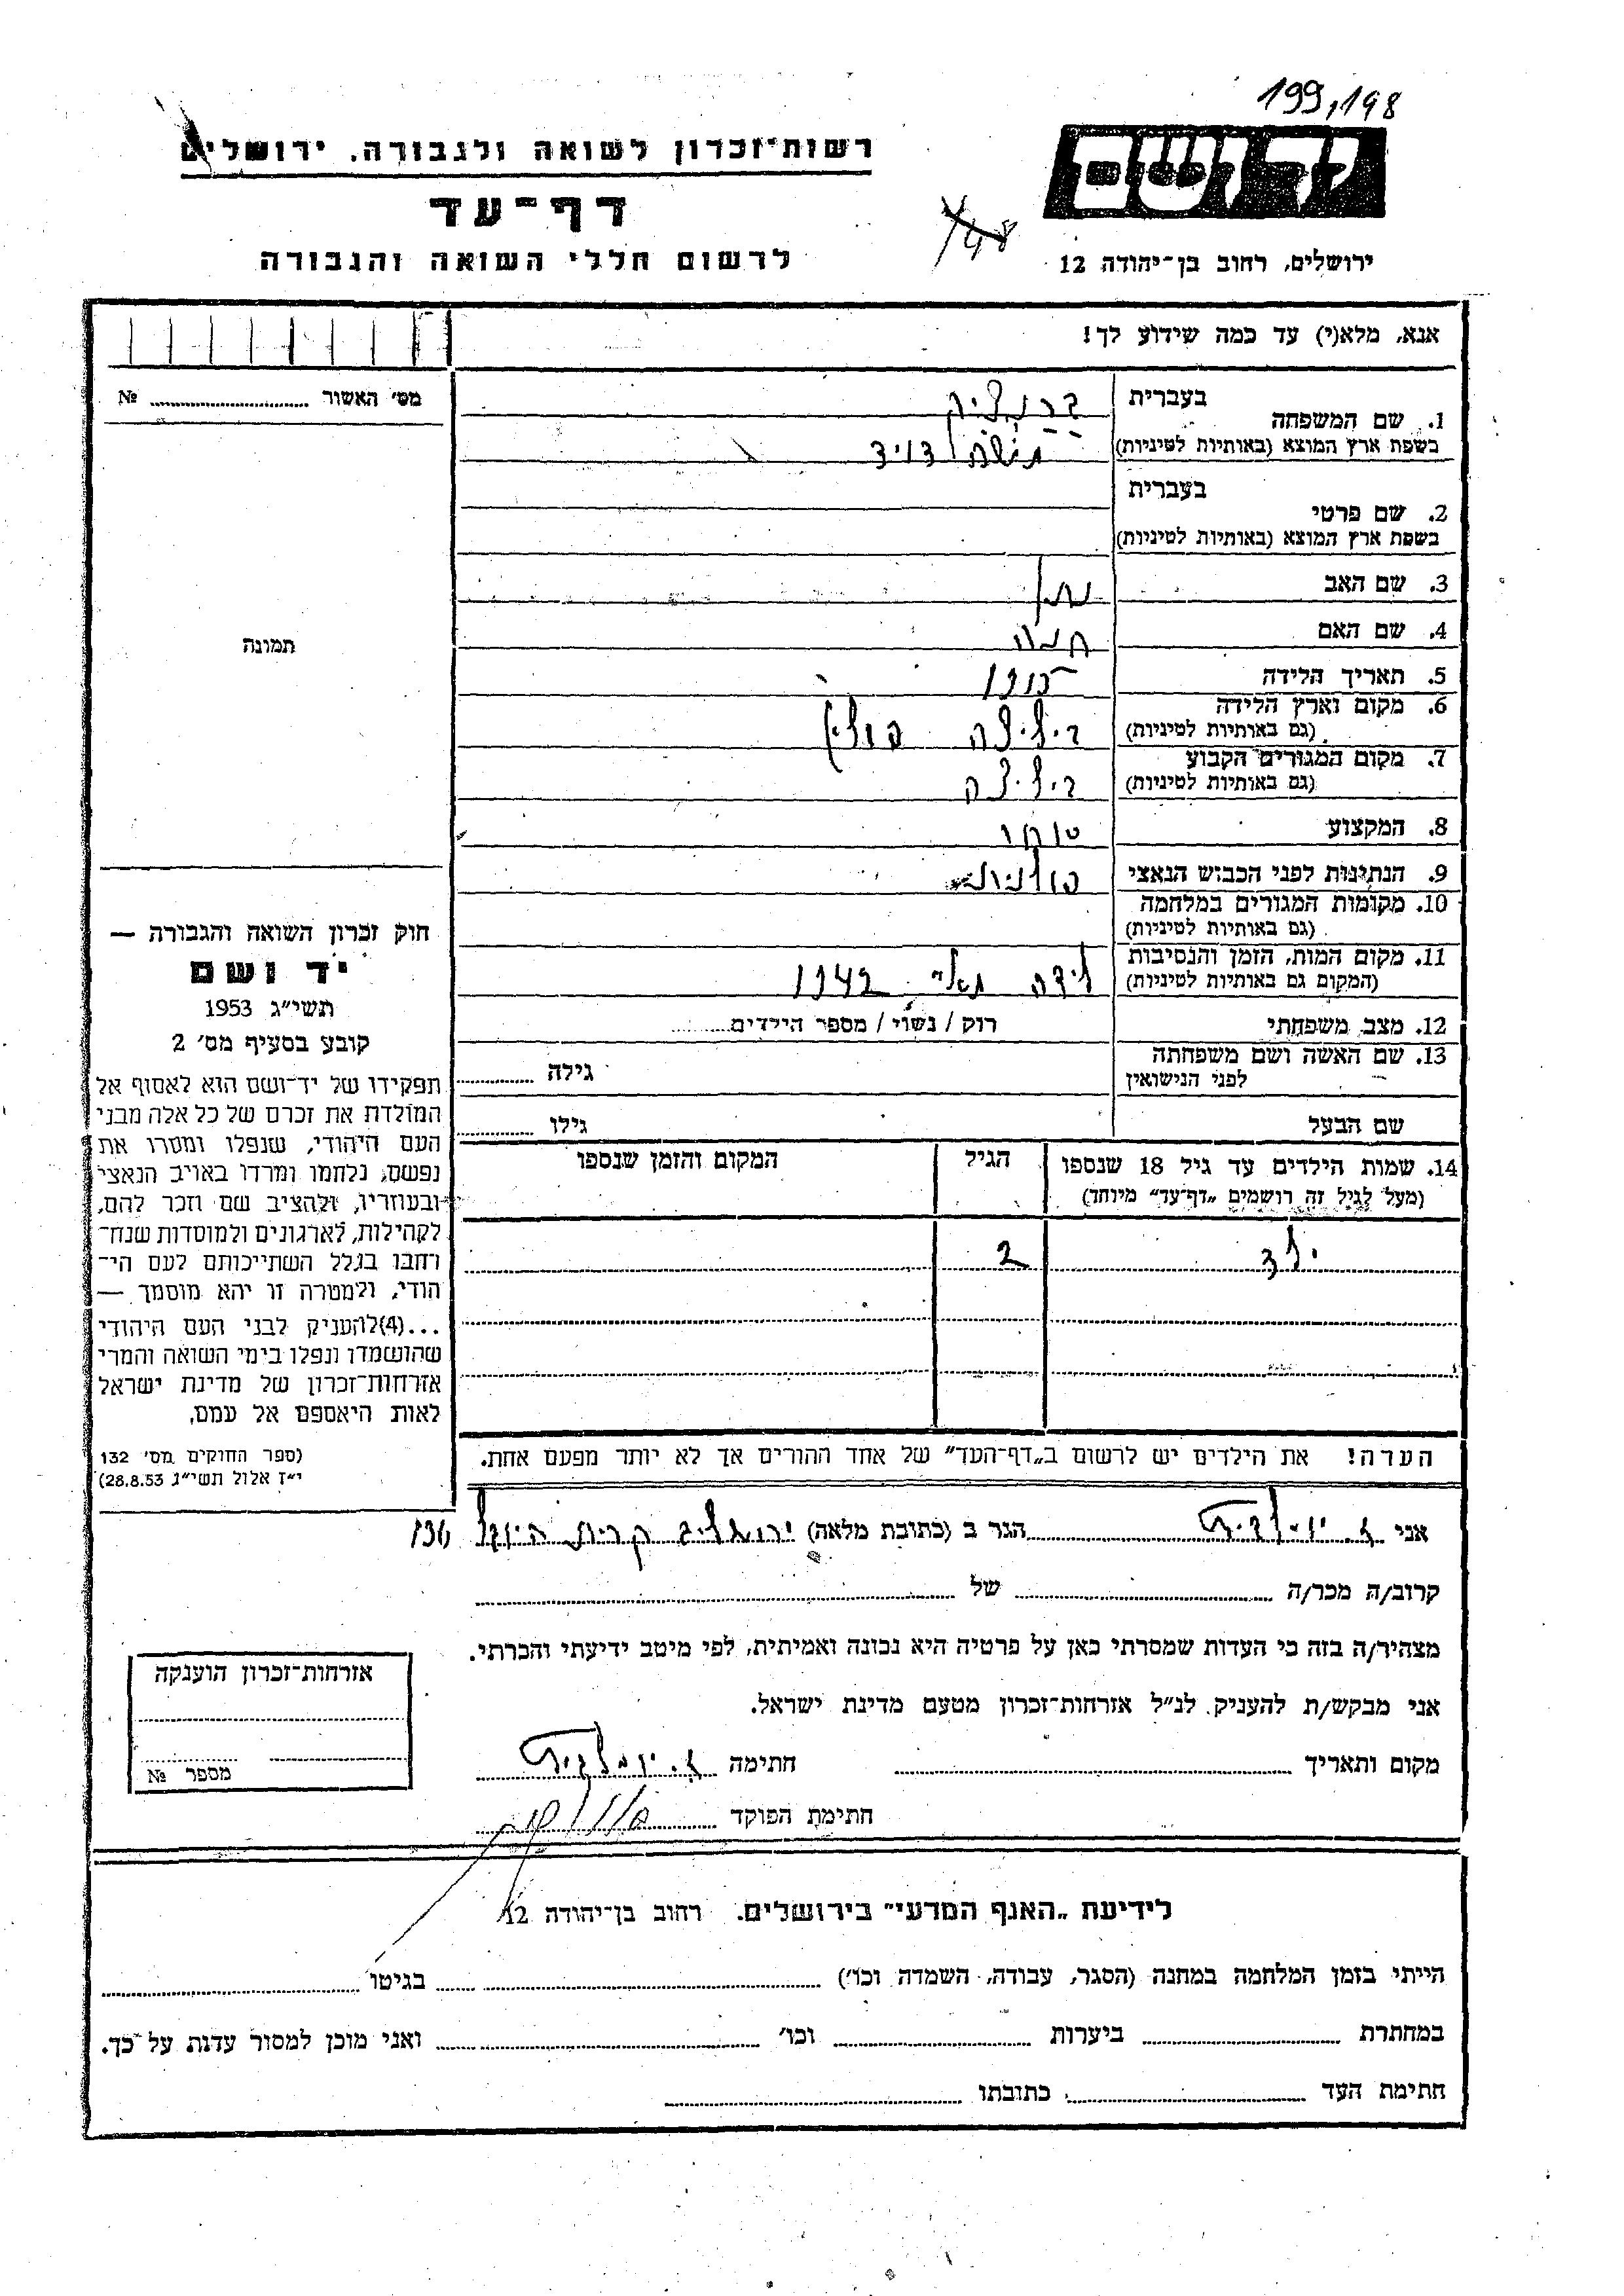 199,198
רשות־זכרון לשואה ולגבורה, ירושלים
ידושם
דף־עד
148
לרשום חללי השואה והגבורה
ירושלים, רחוב בן־יהודה 12
אנא, מלא(י) עד כמה שידוע לך!
מס׳ האשור ........ №
1. שם המשפחה
בעברית
בשפת ארץ המוצא (באותיות לטיניות) משה דויד
2. שם פרטי
בעברית
בשפת ארץ המוצא (באותיות לטיניות)
3. שם האב
4. שם האם חנה
תמונה
5. תאריך הלידה 1915
6. מקום וארץ הלידה
(גם באותיות לטיניות) פולין
7. מקום המגורים הקבוע
(גם באותיות לטיניות)
8. המקצוע סוחר
9. הנתינות לפני הכבוש הנאצי פולנית
10. מקומות המגורים במלחמה
(גם באותיות לטיניות)
11. מקום המות, הזמן והנסיבות
(המקום גם באותיות לטיניות) לידה מאי 1942
12. מצב משפחתי רוק / נשוי / מספר הילדים........
13. שם האשה ושם משפחתה
לפני הנישואין
גילה ........
שם הבעל גילו ........
14. שמות הילדים עד גיל 18 שנספו
(מעל לגיל זה רושמים „דף־עד״ מיוחד)
הגיל
המקום והזמן שנספו
ילד 2
הערה! את הילדים יש לרשום ב„דף־העד״ של אחד ההורים אך לא יותר מפעם אחת.
חוק זכרון השואה והגבורה —
יד ושם
תשי״ג 1953
קובע בסעיף מס׳ 2
תפקידו של יד־ושם הוא לאסוף אל
המולדת את זכרם של כל אלה מבני
העם היהודי, שנפלו ומסרו את
נפשם, נלחמו ומרדו באויב הנאצי
ובעוזריו, ולהציב שם וזכר להם,
לקהילות, לארגונים ולמוסדות שנח־
רחבו בגלל השתייכותם לעם הי־
הודי, ולמטרה זו יהא מוסמך —
...(4)להעניק לבני העם היהודי
שהושמדו ונפלו בימי השואה והמרי
אזרחות־זכרון של מדינת ישראל
לאות היאספם אל עמם,
(ספר החוקים מס׳ 132
י״ז אלול תשי״ג 28.8.53)
אני ........ הגר ב (כתובת מלאה) ירושלים קרית היובל 136
קרוב/ה מכר/ה ........ של ........
מצהיר/ה בזה כי העדות שמסרתי כאן על פרטיה היא נכונה ואמיתית, לפי מיטב ידיעתי והכרתי.
אני מבקש/ת להעניק לנ״ל אזרחות־זכרון מטעם מדינת ישראל.
מקום ותאריך ........ חתימה
חתימת הפוקד
אזרחות־זכרון הוענקה
מספר №
לידיעת „האגף המדעי״ בירושלים, רחוב בן־יהודה 12
הייתי בזמן המלחמה במחנה (הסגר, עבודה, השמדה וכו׳) ........ בגיטו ........
במחתרת ........ ביערות ........ וכו׳ ........ ואני מוכן למסור עדות על כך.
חתימת העד ........ כתובתו ........